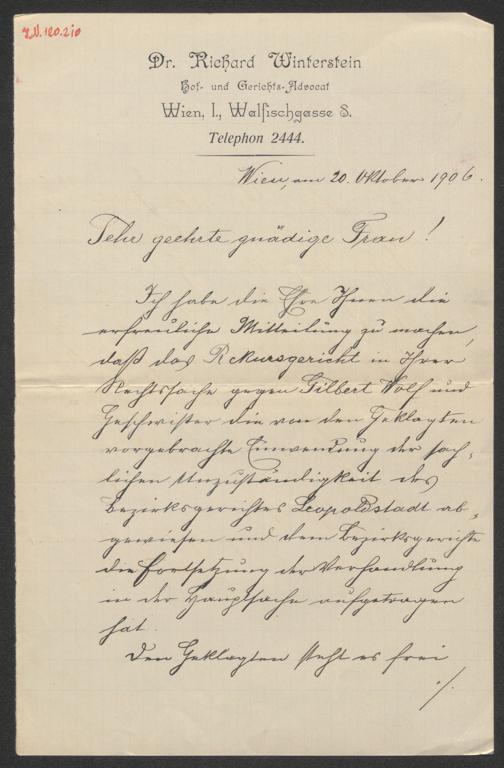 J.N. 120.210
Dr. Richard Winterstein
Hof- und Gerichts-Advocat
Wien, I., Walfischgasse 8.
Telephon 2444.
Wien, am 20. Oktober 1906.
Sehr geehrte gnädige Frau!
Ich habe die Ehre Ihnen die
erfreuliche Mitteilung zu machen,
daß das Rekursgericht in Ihrer
Rechtssache gegen Gilbert Wolf und
Geschwister die von den Geklagten
vorgebrachte Einwendung der sach-
lichen Unzuständigkeit des
Bezirksgerichtes Leopoldstadt ab-
gewiesen und dem Bezirksgerichte
die Fortsetzung der Verhandlung
in der Hauptsache aufgetragen
hat.
Den Geklagten steht es frei
./.